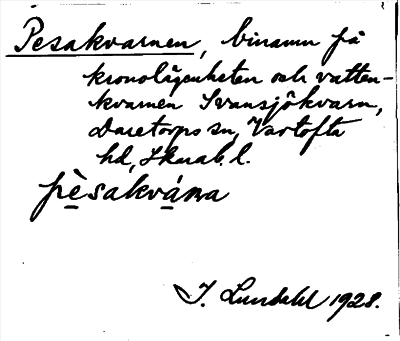 Pesakvarnen, binamn på
kronolägenheten och vatten-
kvarnen Svansjökvarn,
Daretorps sn, Vartofta
hd, Skarab. l.
pèsakvána
J. Lundahl 1928.